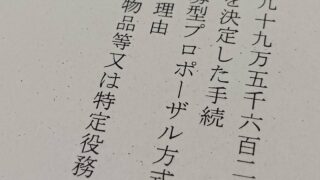 九十九万五千六百二
を決定した手続
型プロポーザル方式
理由
物品等又は特定役務